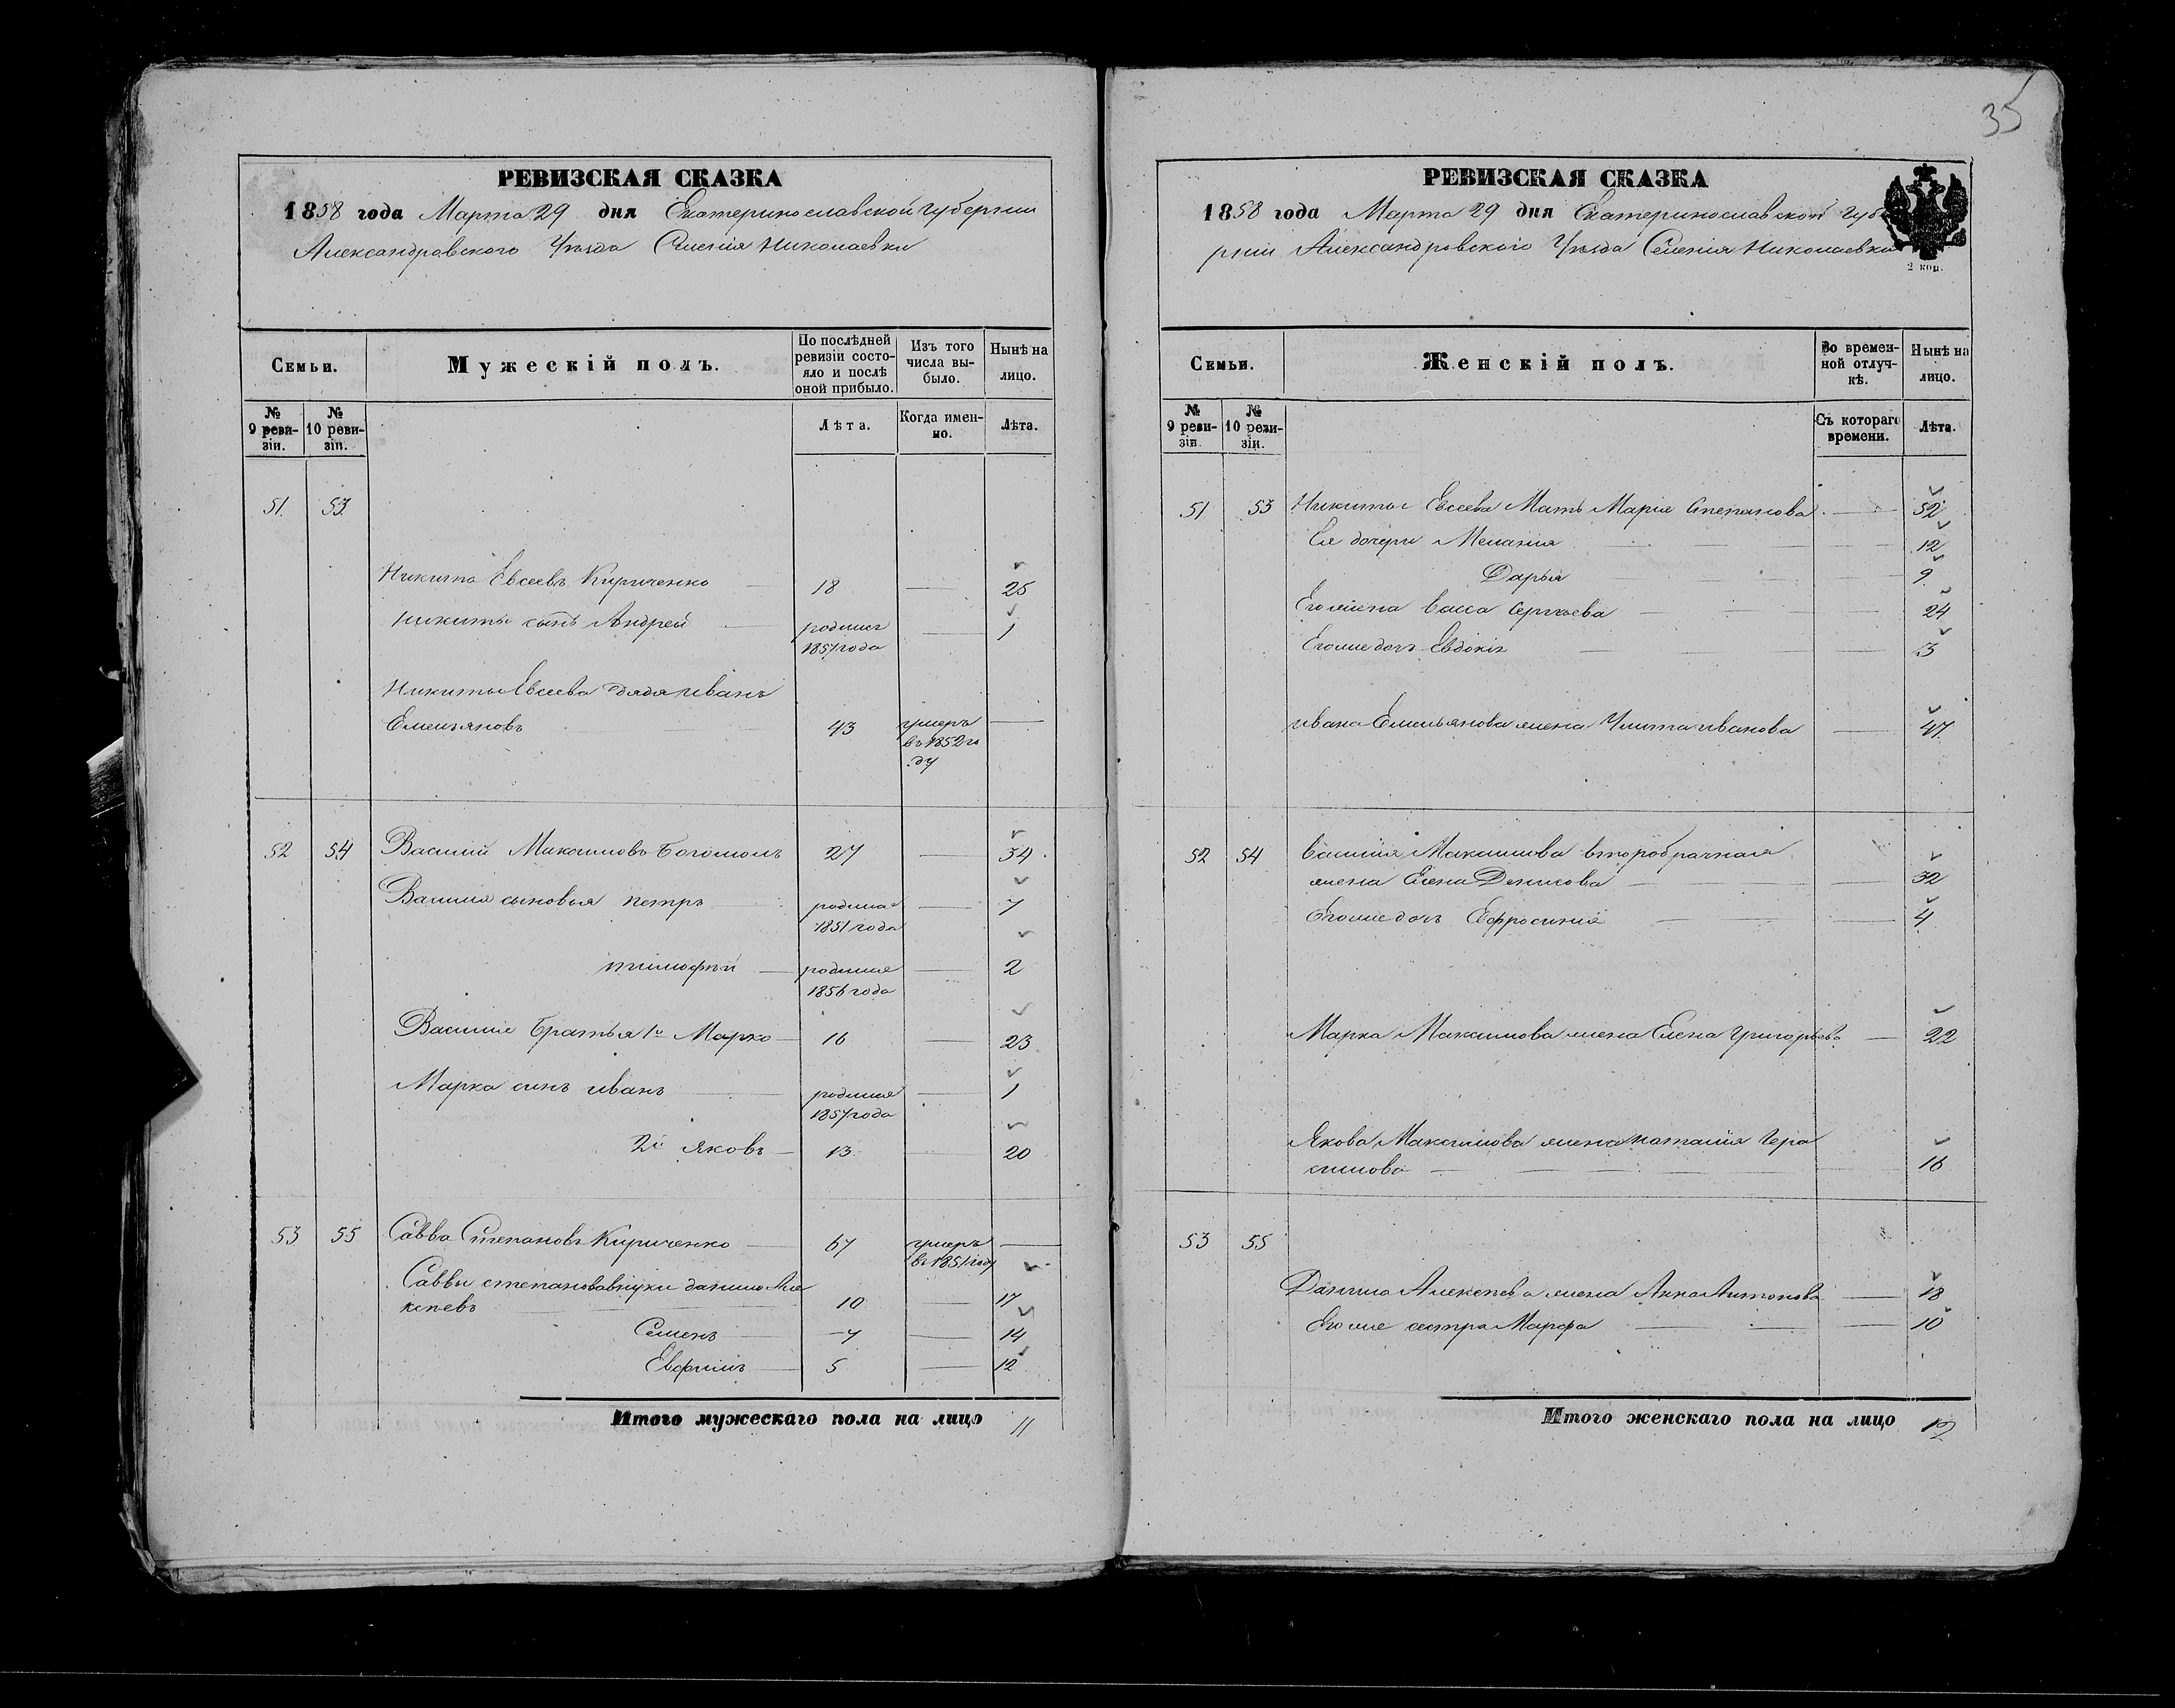 35
РЕВИЗСКАЯ СКАЗКА
1858 года Марта 29 дня Екатеринославской Губернии
Александравского Уѣзда Селенія Николаевки
Семьи.
Мужескій полъ.
По послѣдней ревизіи состояло и послѣ оной прибыло.
Изъ того числа выбыло.
Нынѣ на лицо.
№ 9 ревизіи.
№ 10 ревизіи.
Лѣта.
Когда именно.
Лѣта.
51 53
Никита Евсеевъ Кириченко 18 — 25
Никиты сынъ Андрей родился 1857 года — 1
Никиты Евсеева дядя Иванъ
Емельяновъ 43 умеръ въ 1852 году —
52 54 Василий Максимовъ Богомолъ 27 — 34
Василия сыновья Петръ родился 1851 года — 7
Тимофѣй родился 1856 года — 2
Василие Братья 1й Марко 16 — 23
Марка сынъ Иванъ родился 1857 года — 1
2й Яковъ 13 — 20
53 55 Савва Степановъ Кириченко 67 умеръ въ 1851 году —
Саввы Степанова внуки Данило Але
ксѣевъ 10 — 17
Семенъ 7 — 14
Евфимъ 5 — 12
Итого мужескаго пола на лицо 11
РЕВИЗСКАЯ СКАЗКА
1858 года Марта 29 дня Екатеринославской Губе
рнии Александровского Уѣзда Селенія Николаевки
2 коп.
Семьи.
Женскій полъ.
Во временной отлучкѣ.
Нынѣ на лицо.
№ 9 ревизіи.
№ 10 ревизіи.
Съ котораго времени.
Лѣта.
51 53 Никиты Евсеева Мать Марія Степанова — 52
Ея дочери Меланія — 12
Дарья — 9
Его жена Васса Сергѣева — 24
Его же дочь Евдокія — 3
Ивана Емельянова жена Улита Иванова — 47
52 54 Василия Максимова второбрачная
жена Елена Денисова — 32
Его же дочь Ефросинія — 4
Марка Максимова жена Елена Григорьева — 22
Якова Максимова жена Наталия Гера
симова — 16
53 55
Данила Алексѣева жена Анна Антонова — 18
Его же сестра Марфа — 10
Итого женскаго пола на лицо 12